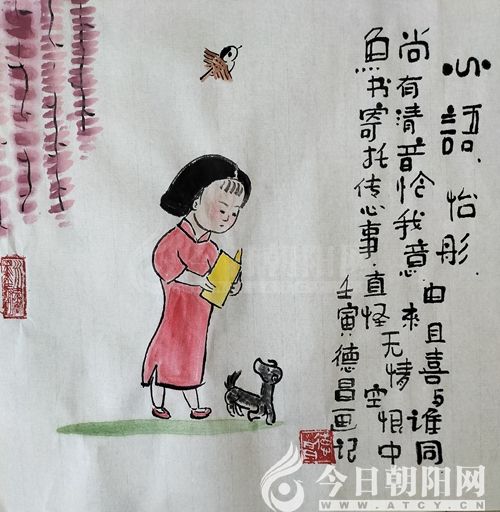 心語.怡彤.
由且喜与谁同
尚有清音怜我意来无情空恨中
鱼书寄托传心事直怪
壬寅德昌画记
今日朝阳网
WWW.ATCY.CN